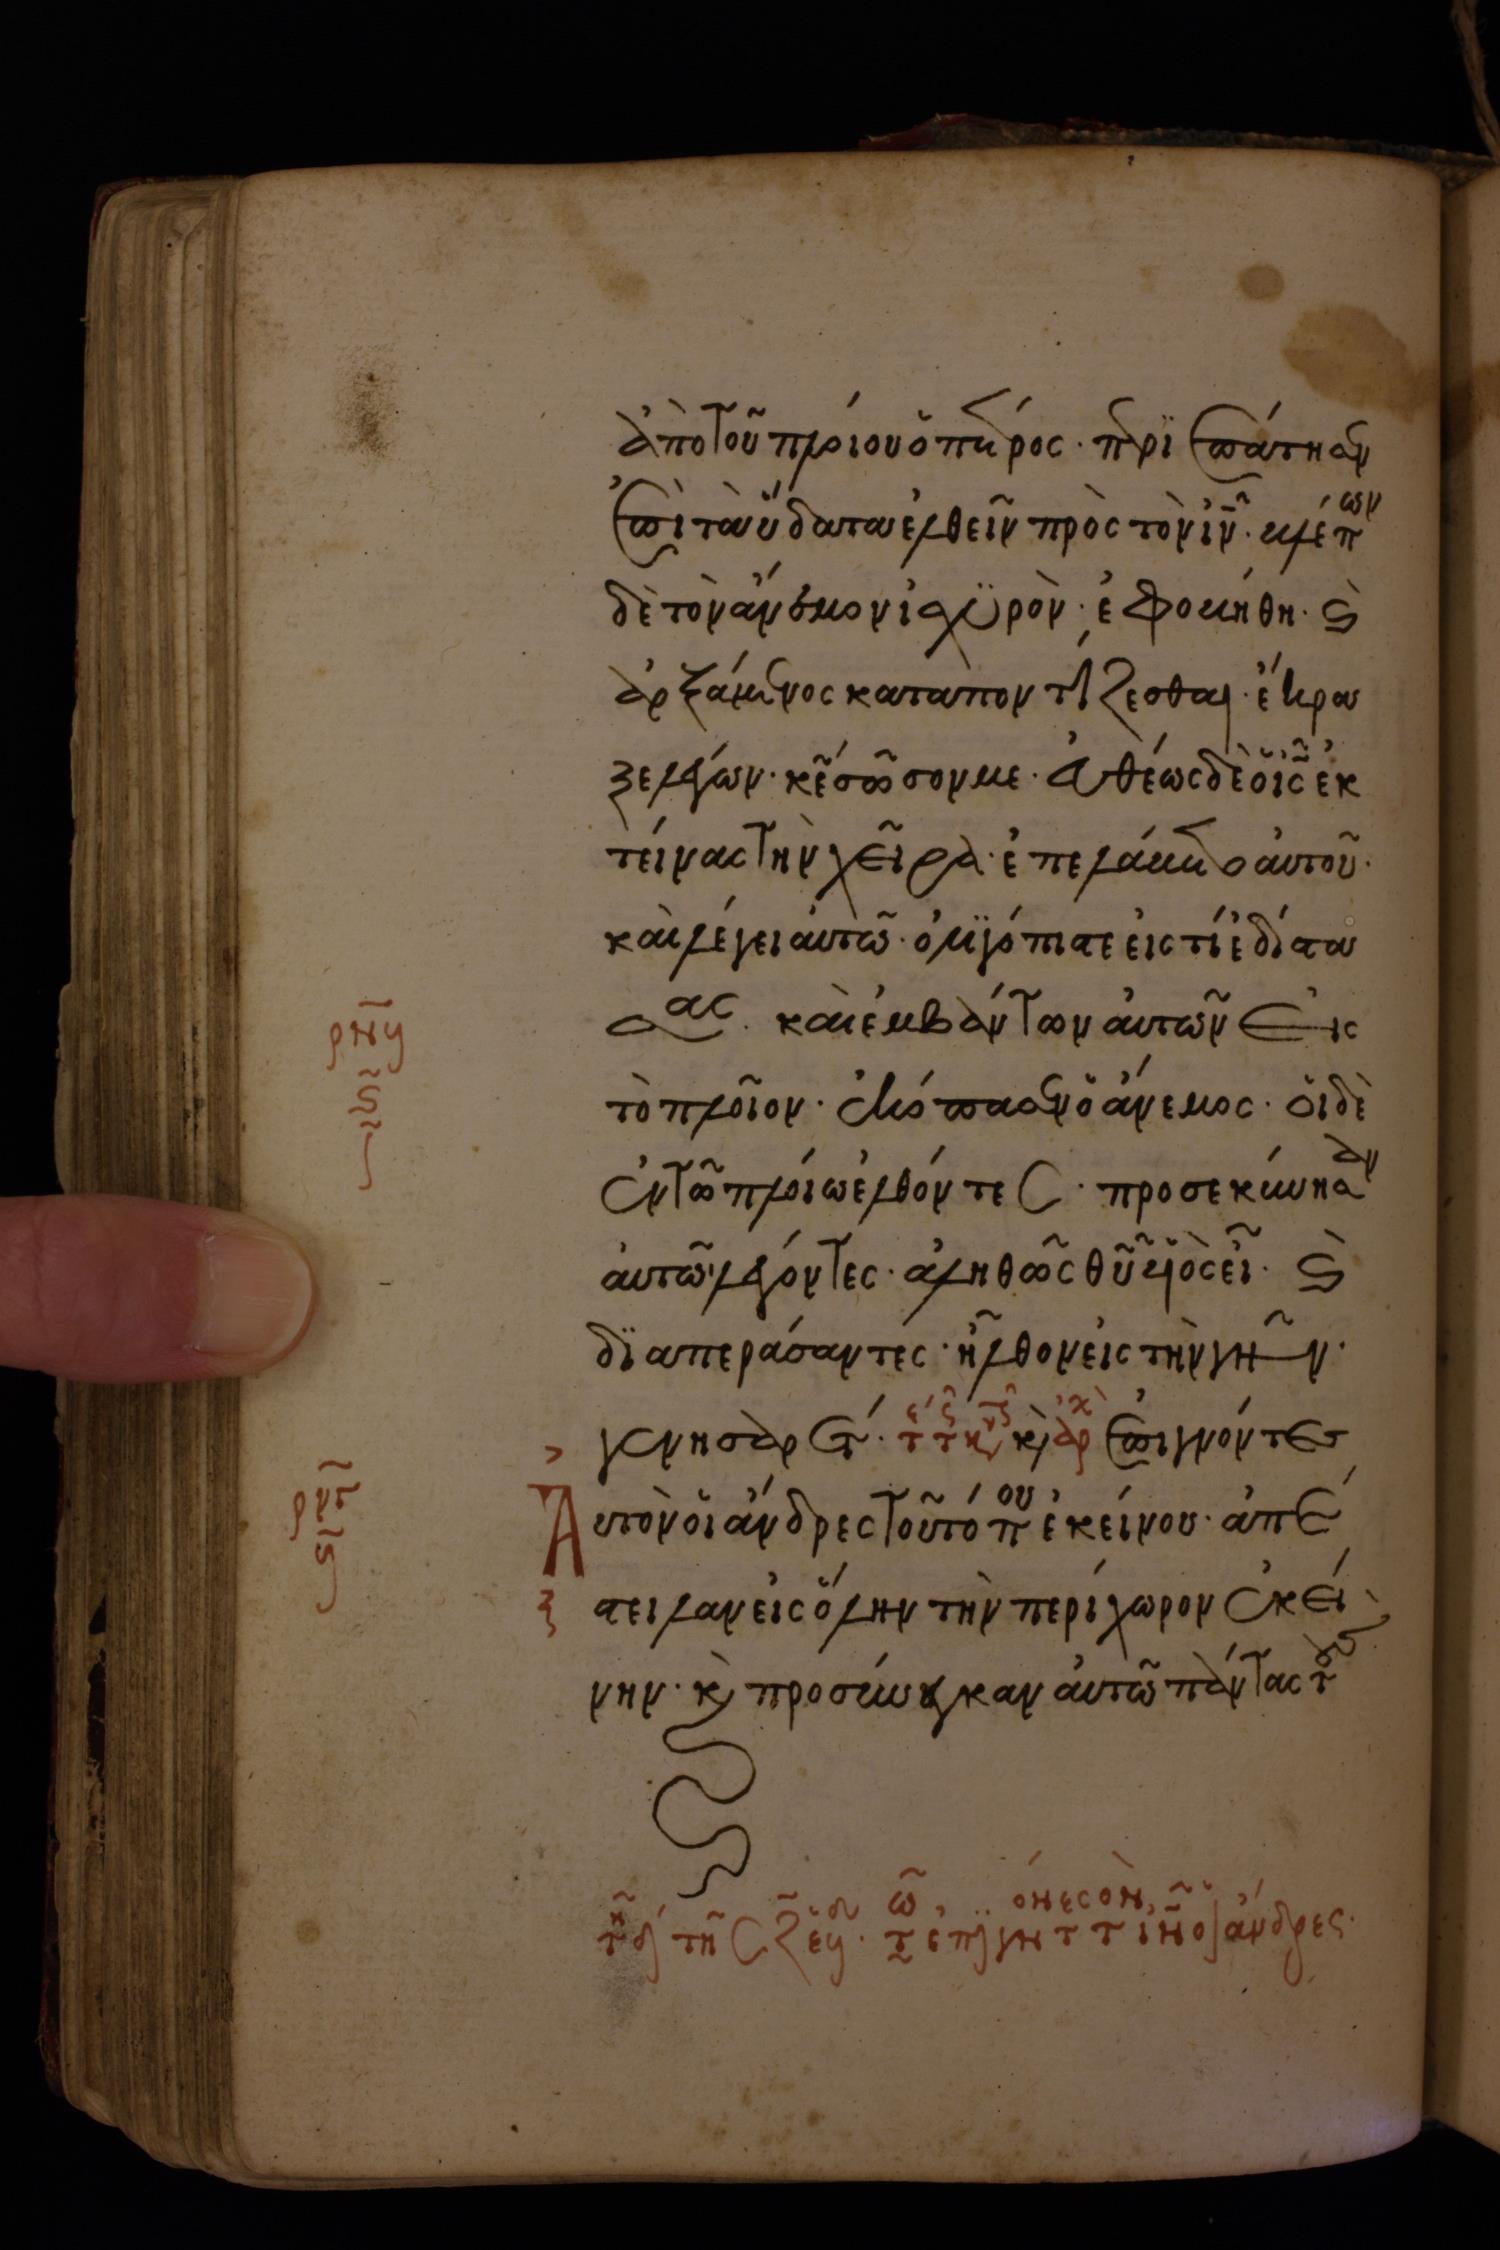 ἀπὸ τοῦ πλοίου ὁ πέτρος· περϊεπάτησεν
ἐπὶ τὰ ὕδατα ἐλθεῖν πρὸς τὸν ἰν̄· βλέπων
δὲ τὸν ἄνεμον ἰσχϋρὸν· ἐφοβήθη· ϛ̀
ἀρξάμενος καταποντίζεσθαι· ἔκρα
ξε λέγων· κε̄ σῶσον με· εὐθέως δὲ ὁ ις̄ ἐκ
τείνας τὴν χεῖρα· ἐπελάβετο αὐτοῦ·
καὶ λέγει αὐτῶ· ὀλϊγόπιστε εἰς τί ἐδίστα
σας· καὶ ἐμβάντων αὐτῶν εἰς
τὸ πλοῖον· ἐκόπασεν ὁ ἄνεμος· οἱ δὲ
ἐν τῶ πλοίω ἐλθόντες· προσεκύνησαν
αὐτῶ λέγοντες· ἀληθῶς θῡ υἱὸς εἶ· ϛ̀
δϊαπεράσαντές· ἦλθον εἰς τὴν γῆν·
γενησαρέτ· κὶ ἐπιγνόντες
Αυτὸν οἱ ἄνδρες τοῦ τόπου ἐκείνου· ἀπέ
στειλαν εἰς ὅλην τὴν περίχωρον ἐκεί
νην· κὶ προσήνεγκαν αὐτῶ πάντας τοὺς